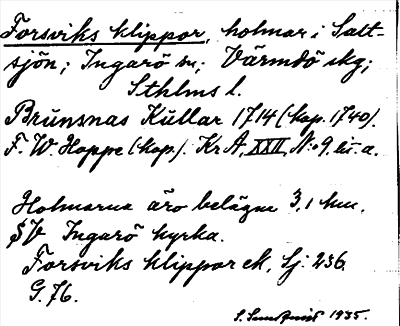 Forsviks klippor, holmar i Satt-
sjön; Ingarö sn; Värmdö skg;
Sthlms l.
Brŭnsnas Kŭllar 1714 (kop. 1740).
F. W. Hoppe (kop.). Kr A, XXII, N:o 9. lit. a.
Holmarna äro belägna 3,1 km.
SV Ingarö kyrka.
Forsviks klippor ek. bl. 236
G. 76.
1935.